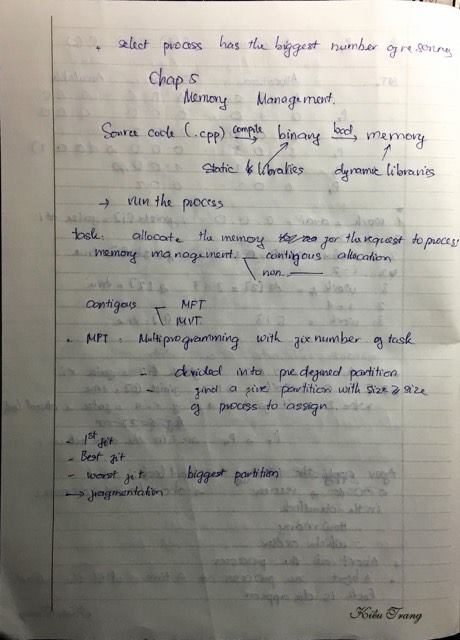 . select process has the biggest number of resources
Chap 5
Memory Management.
Source code (.cpp) compile → binary load → memory
static libraries dynamic libraries
→ run the process
task: allocate the memory for the request to process
memory management. contigous allocation
non.
contigous MFT
MVT
. MFT: Multiprogramming with fix number of task
- devided into predefined partition
- find a fixe partition with size ≥ size
of process to assign
- 1st fit
- Best fit
- worst fit biggest partition
→ fragmentation
Kiều Trang